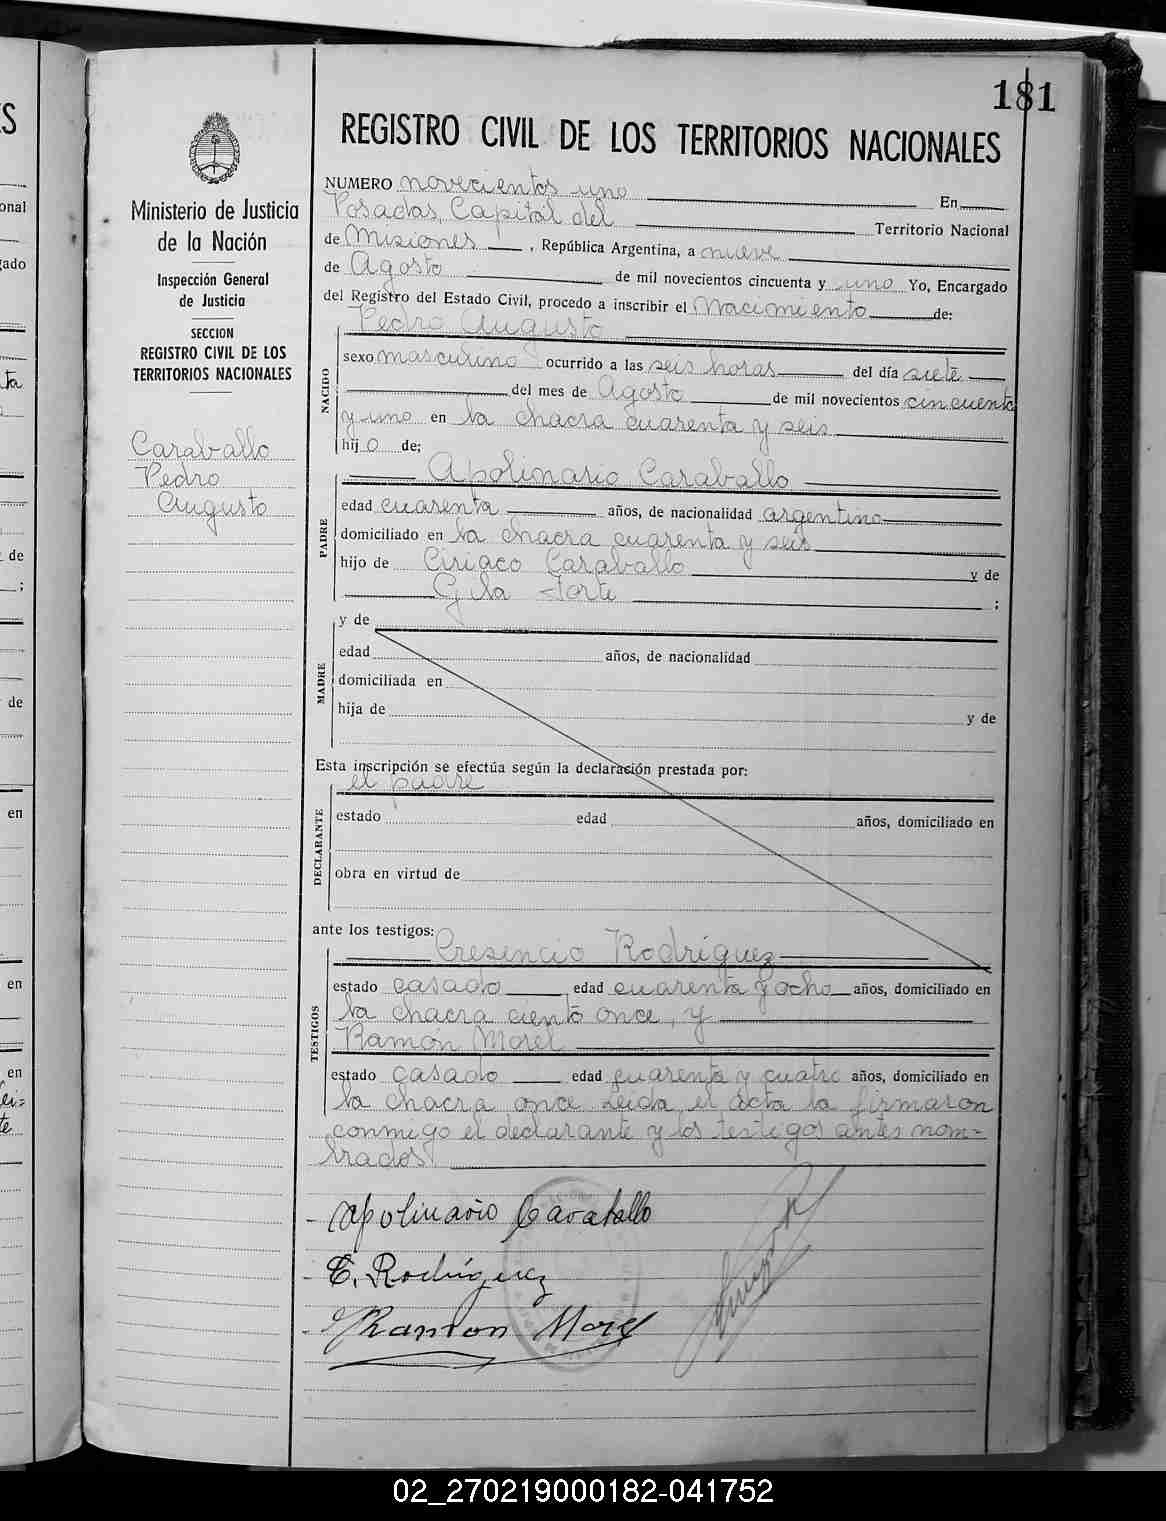 181
REGISTRO CIVIL DE LOS TERRITORIOS NACIONALES
Ministerio de Justicia
de la Nación
Inspección General
de Justicia
SECCION
REGISTRO CIVIL DE LOS
TERRITORIOS NACIONALES
Caraballo
Pedro
Augusto
NUMERO novecientos uno En
Posadas, Capital del Territorio Nacional
de Misiones, República Argentina, a nueve
de Agosto de mil novecientos cincuenta y uno Yo, Encargado
del Registro del Estado Civil, procedo a inscribir el Nacimiento de:
Pedro Augusto
NACIDO
sexo masculino ocurrido a las seis horas del día siete
del mes de Agosto de mil novecientos cincuenta
y uno en la chacra cuarenta y seis
hijo de;
Apolinario Caraballo
PADRE
edad cuarenta años, de nacionalidad argentino
domiciliado en la chacra cuarenta y seis
hijo de Ciriaco Caraballo y de
Gila ;
MADRE
y de
edad años, de nacionalidad
domiciliada en
hija de y de
Esta inscripción se efectúa según la declaración prestada por:
el padre
DECLARANTE
estado edad años, domiciliado en
obra en virtud de
ante los testigos:
Cresencio Rodríguez
TESTIGOS
estado casado edad cuarenta y ocho años, domiciliado en
la chacra ciento once, y
Ramón Morel
estado casado edad cuarenta y cuatro años, domiciliado en
la chacra once Leida el acta la firmaron
conmigo el declarante y los testigos antes nom-
brados
Apolinario Caraballo
C. Rodríguez
Ramon Morel
02_270219000182-041752